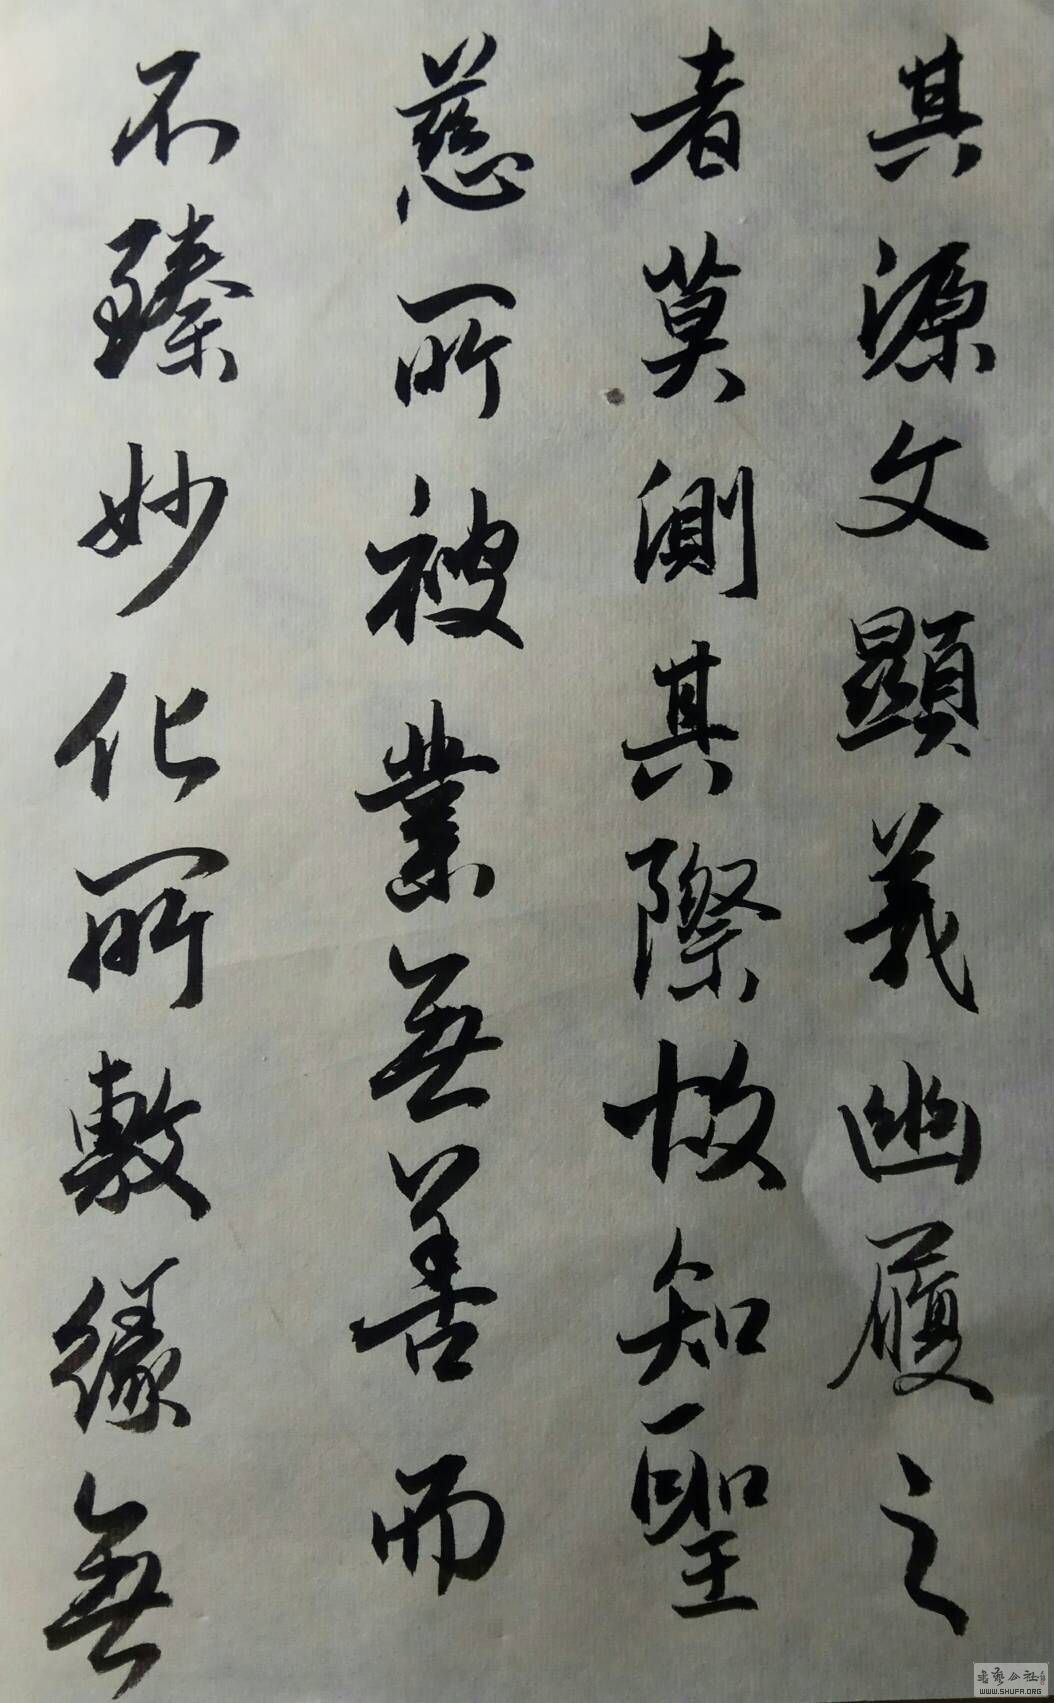 其源文顯義幽履之
者莫測其際故知聖
慈所被業無善而
不臻妙化所敷緣無
WWW.SHUFA.ORG